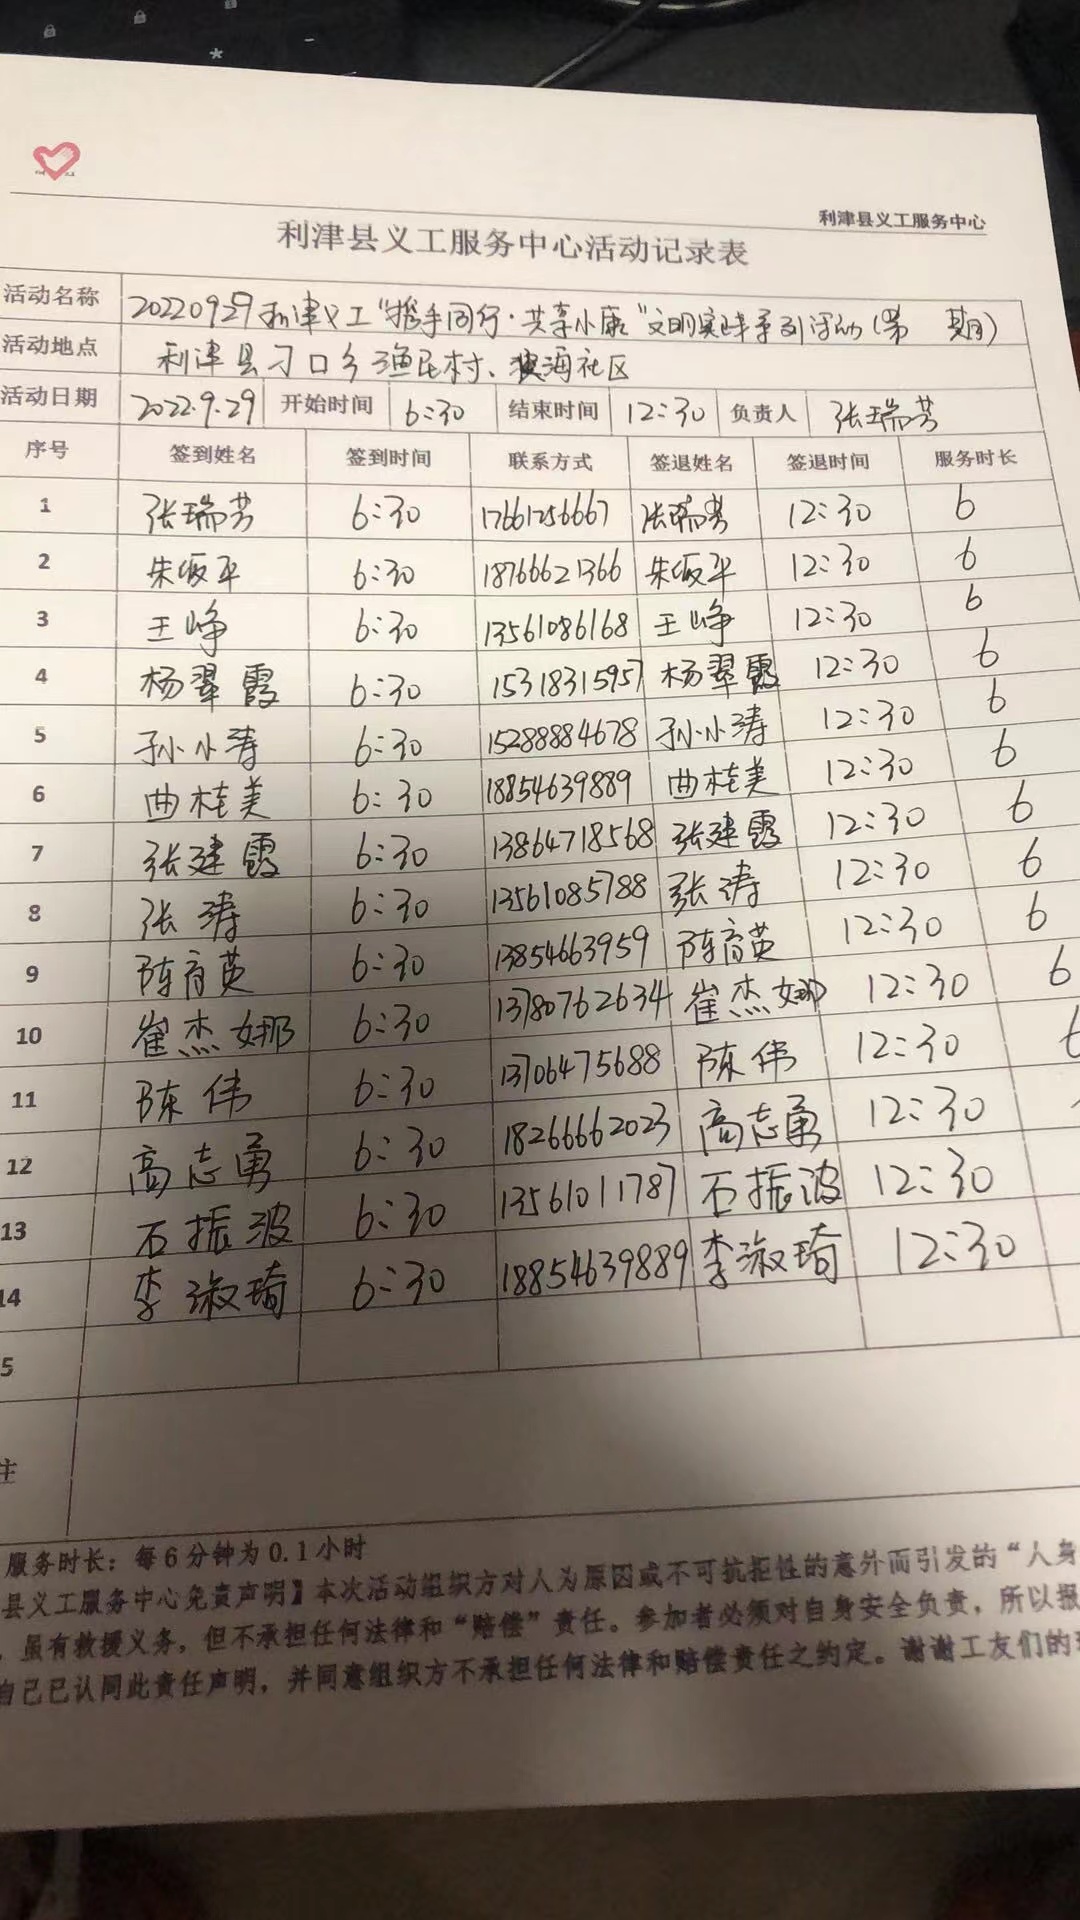 利津县义工服务中心
利津县义工服务中心活动记录表
活动名称 20220929利津义工“携手同行·共享小康”文明实践系列活动(第 期)
活动地点 利津县刁口乡渔民村、滨海社区
活动日期 2022.9.29 开始时间 6:30 结束时间 12:30 负责人 张瑞芳
序号 签到姓名 签到时间 联系方式 签退姓名 签退时间 服务时长
1 张瑞芳 6:30 17661256667 张瑞芳 12:30 6
2 朱 平 6:30 18766621366 朱 平 12:30 6
3 王峥 6:30 13561086168 王峥 12:30 6
4 杨翠霞 6:30 15318315957 杨翠霞 12:30 6
5 孙小涛 6:30 15288884678 孙小涛 12:30 6
6 曲桂美 6:30 18854639889 曲桂美 12:30 6
7 张建霞 6:30 13864718568 张建霞 12:30 6
8 张涛 6:30 13561085788 张涛 12:30 6
9 陈育英 6:30 13854663959 陈育英 12:30 6
10 崔杰娜 6:30 13780762634 崔杰娜 12:30 6
11 陈伟 6:30 13706475688 陈伟 12:30
12 高志勇 6:30 18266662023 高志勇 12:30
13 石振波 6:30 13561011787 石振波 12:30
14 李淑琦 6:30 18854639889 李淑琦 12:30
5
注
服务时长：每6分钟为0.1小时
县义工服务中心免责声明】本次活动组织方对人为原因或不可抗拒性的意外而引发的“人身
，虽有救援义务，但不承担任何法律和“赔偿”责任。参加者必须对自身安全负责，所以报
自己已认同此责任声明，并同意组织方不承担任何法律和赔偿责任之约定。谢谢工友们的